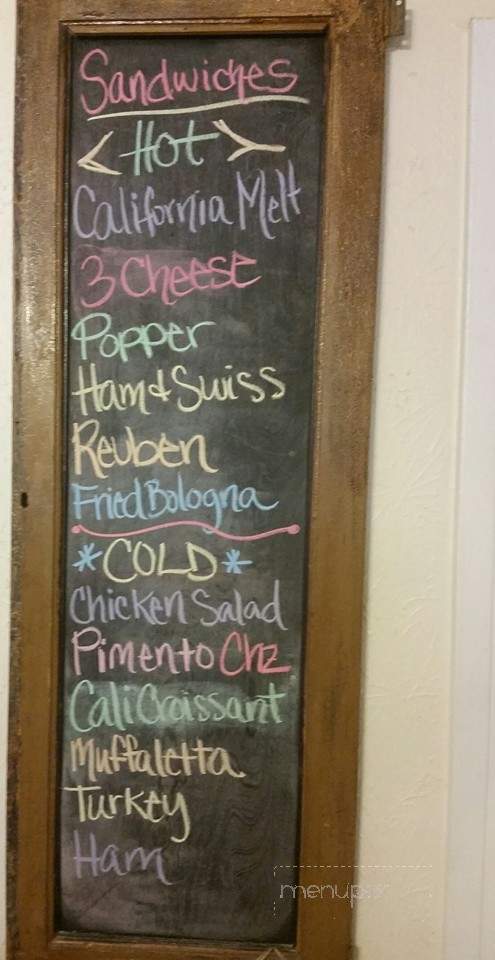 Sandwiches
< Hot >
California Melt
3 Cheese
Popper
Ham & Swiss
Reuben
Fried Bologna
* COLD *
Chicken Salad
Pimento Chz
Cali Croissant
Muffaletta
Turkey
Ham